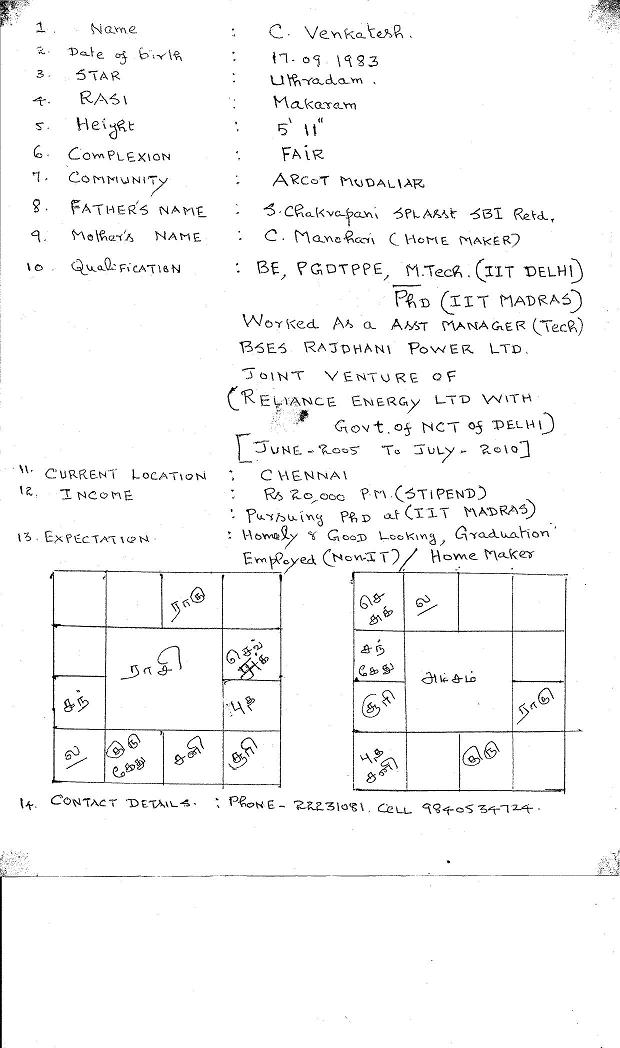 1. Name : C. Venkatesh.
2. Date of birth : 17.09.1983
3. STAR : Uthradam.
4. RASI : Makaram
5. Height : 5' 11"
6. COMPLEXION : FAIR
7. COMMUNITY : ARCOT MUDALIAR
8. FATHER'S NAME : S. Chakrapani SPLASST SBI Retd,
9. Mother's NAME : C. Manohari (HOME MAKER)
10. Qualification : BE, PGDTPPE, M.Tech. (IIT DELHI)
PhD (IIT MADRAS)
Worked As a ASST MANAGER (Tech)
BSES RAJDHANI POWER LTD.
JOINT VENTURE OF
(RELIANCE ENERGY LTD WITH
Govt. of NCT of DELHI)
[JUNE-2005 To JULY-2010]
11. CURRENT LOCATION : CHENNAI
12. INCOME : Rs 20,000 P.M. (STIPEND)
: Pursuing PhD at (IIT MADRAS)
13. EXPECTATION : Homely & Good Looking, Graduation
Employed (Non-IT) / Home Maker
ராகு
ராசி
செவ்
சுக்
சந்
புத
ல
குரு
கேது
சனி
சூரி
செ
சுக்
ல
சந்
கேது
அம்சம்
சூரி
ராகு
புத
சனி
குரு
14. CONTACT DETAILS. : PHONE - 22231081. CELL 9840534724.